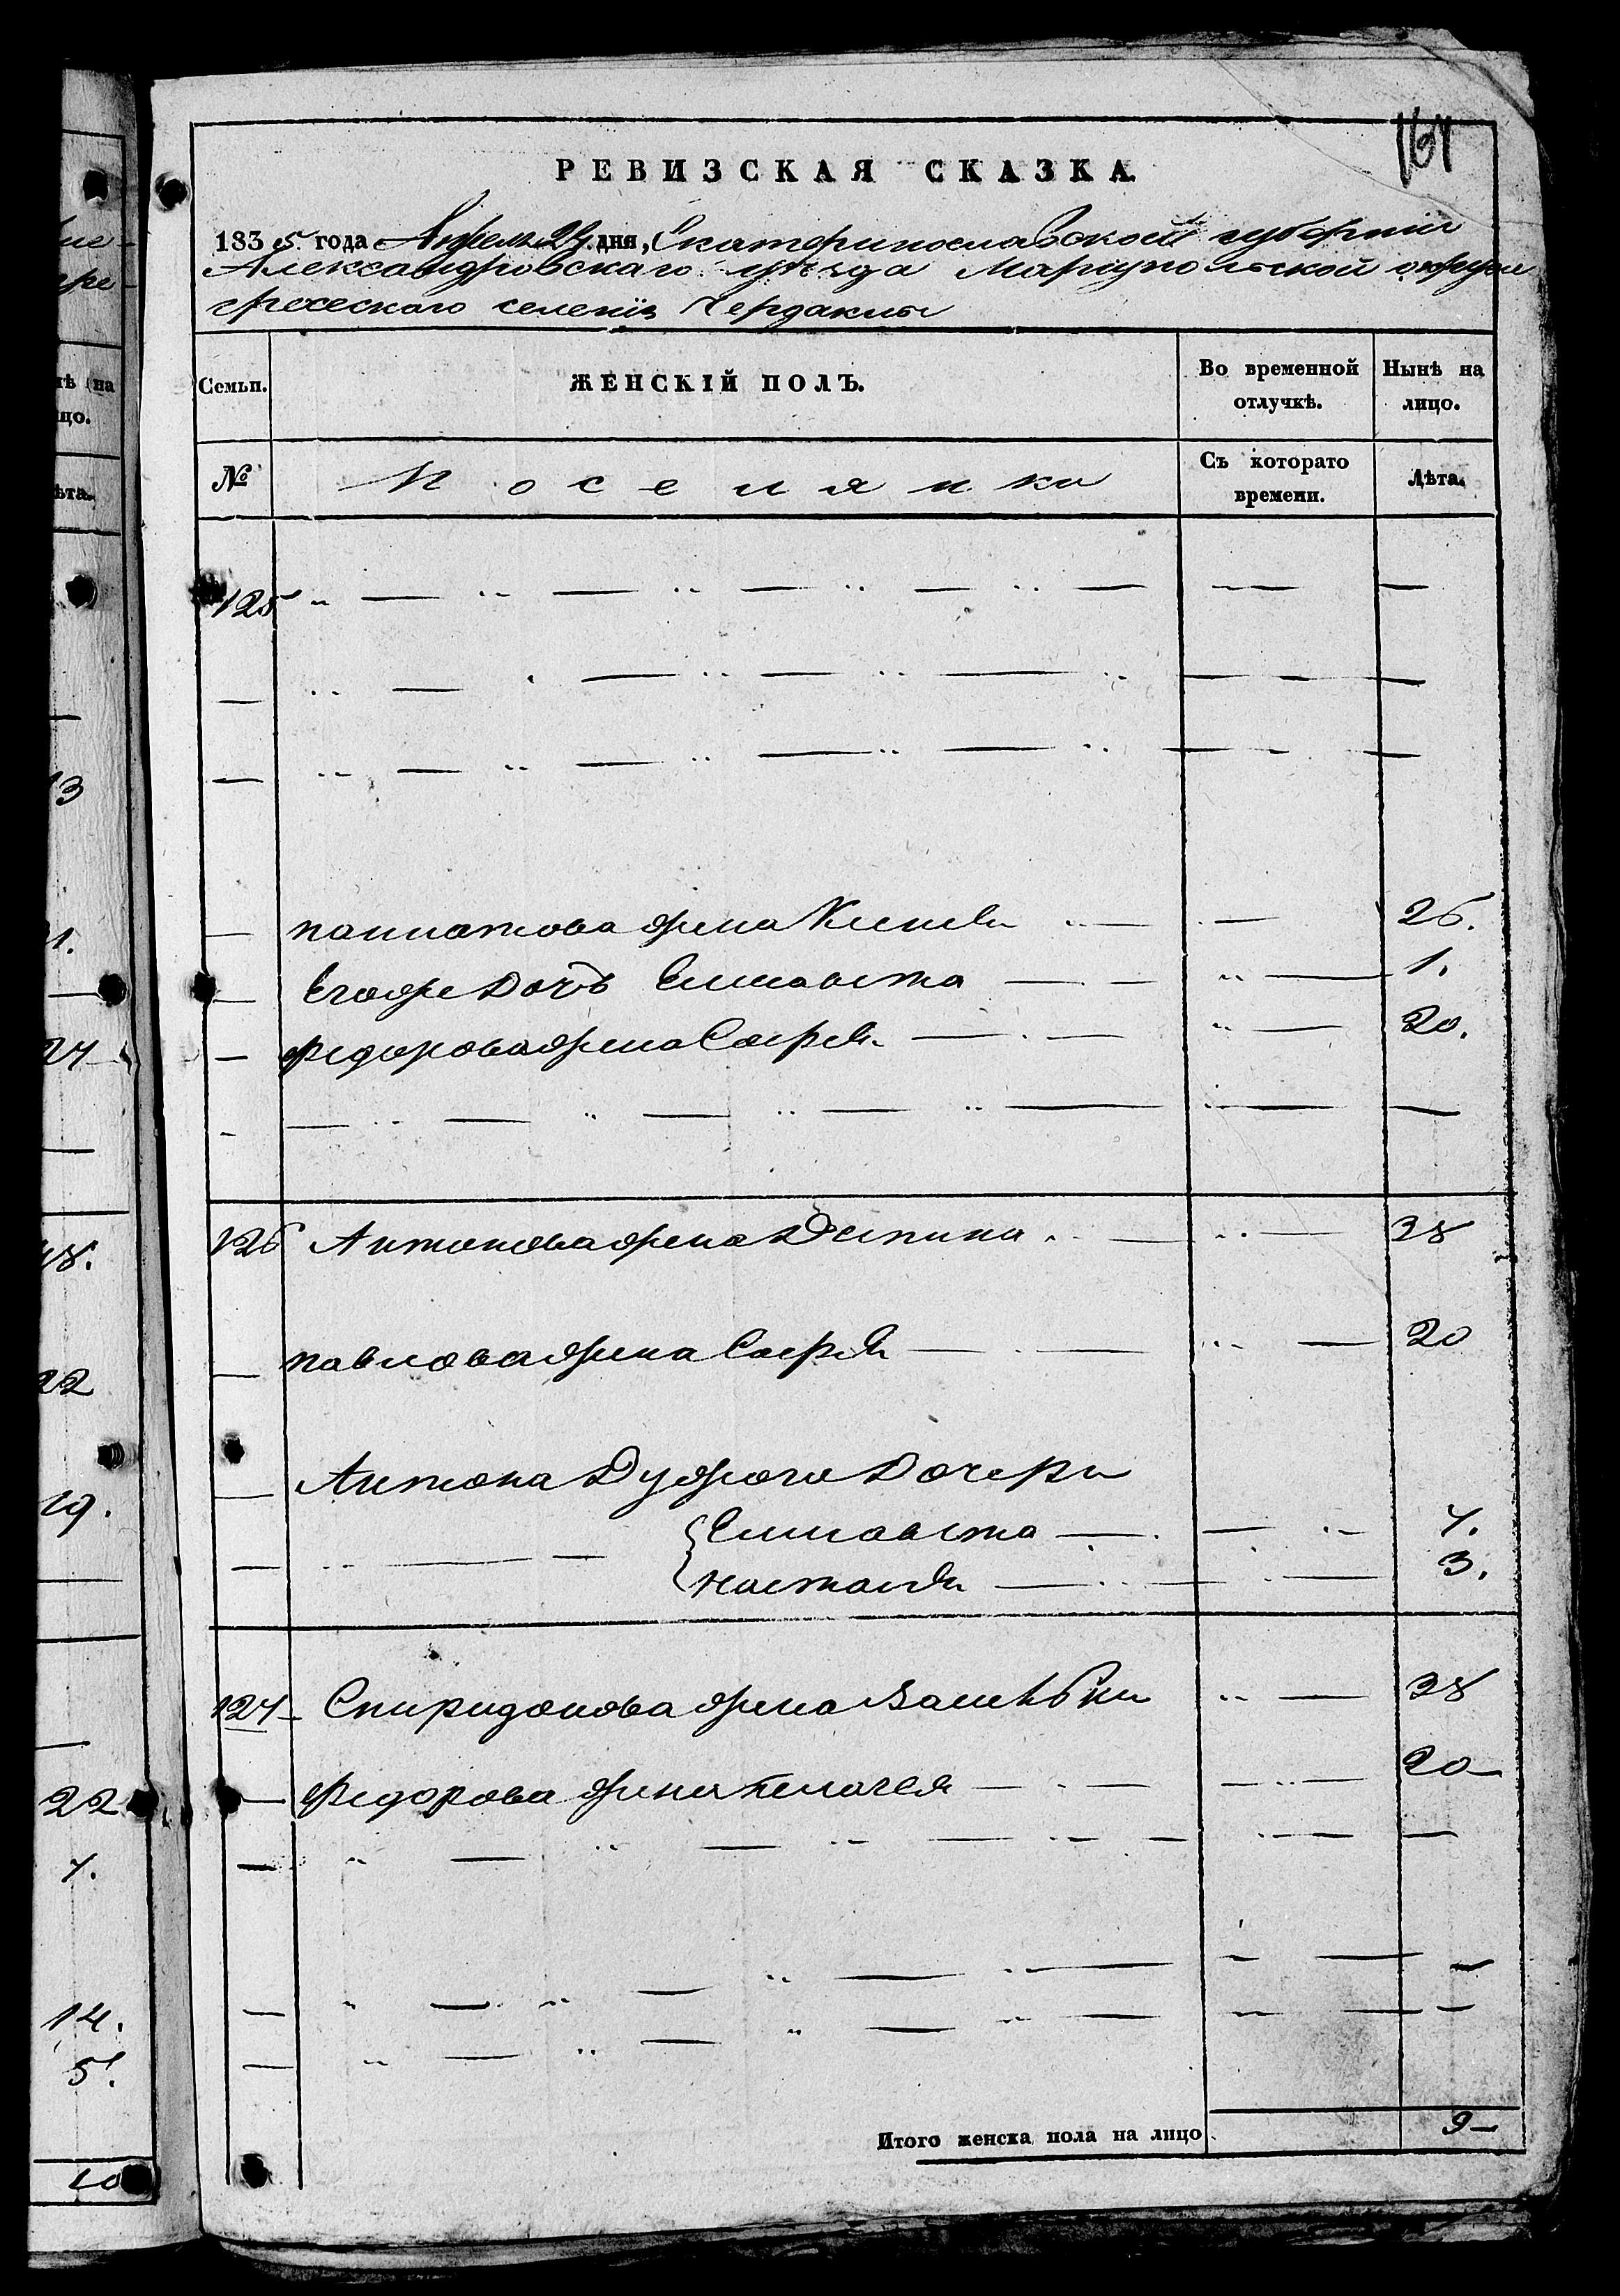 161
РЕВИЗСКАЯ СКАЗКА.
1835. года Апреля 27. дня, Екатеринославской губернии
Александровскаго уѣзда Мариупольской округи
греческаго селенія Чердаклы
Семьи. ЖЕНСКІЙ ПОЛЪ. Во временной отлучкѣ. Нынѣ на лицо.
№ Поселянки Съ которато времени. Лѣта.
125
жена 26.
Егоже дочь Елисавета 1.
Федорова жена Софія 20.
126 Антонова жена Деспина 38
Павлова жена Софія 20
Антона Дуфого дочери
Елисавета 7.
Настасія 3.
127 Спиридонова жена 38
Федорова жена Пелагея 20
Итого женска пола на лицо 9
нѣ на
цо.
ѣта.
13
1.
27
48.
22
19.
22
7.
14.
5.
10